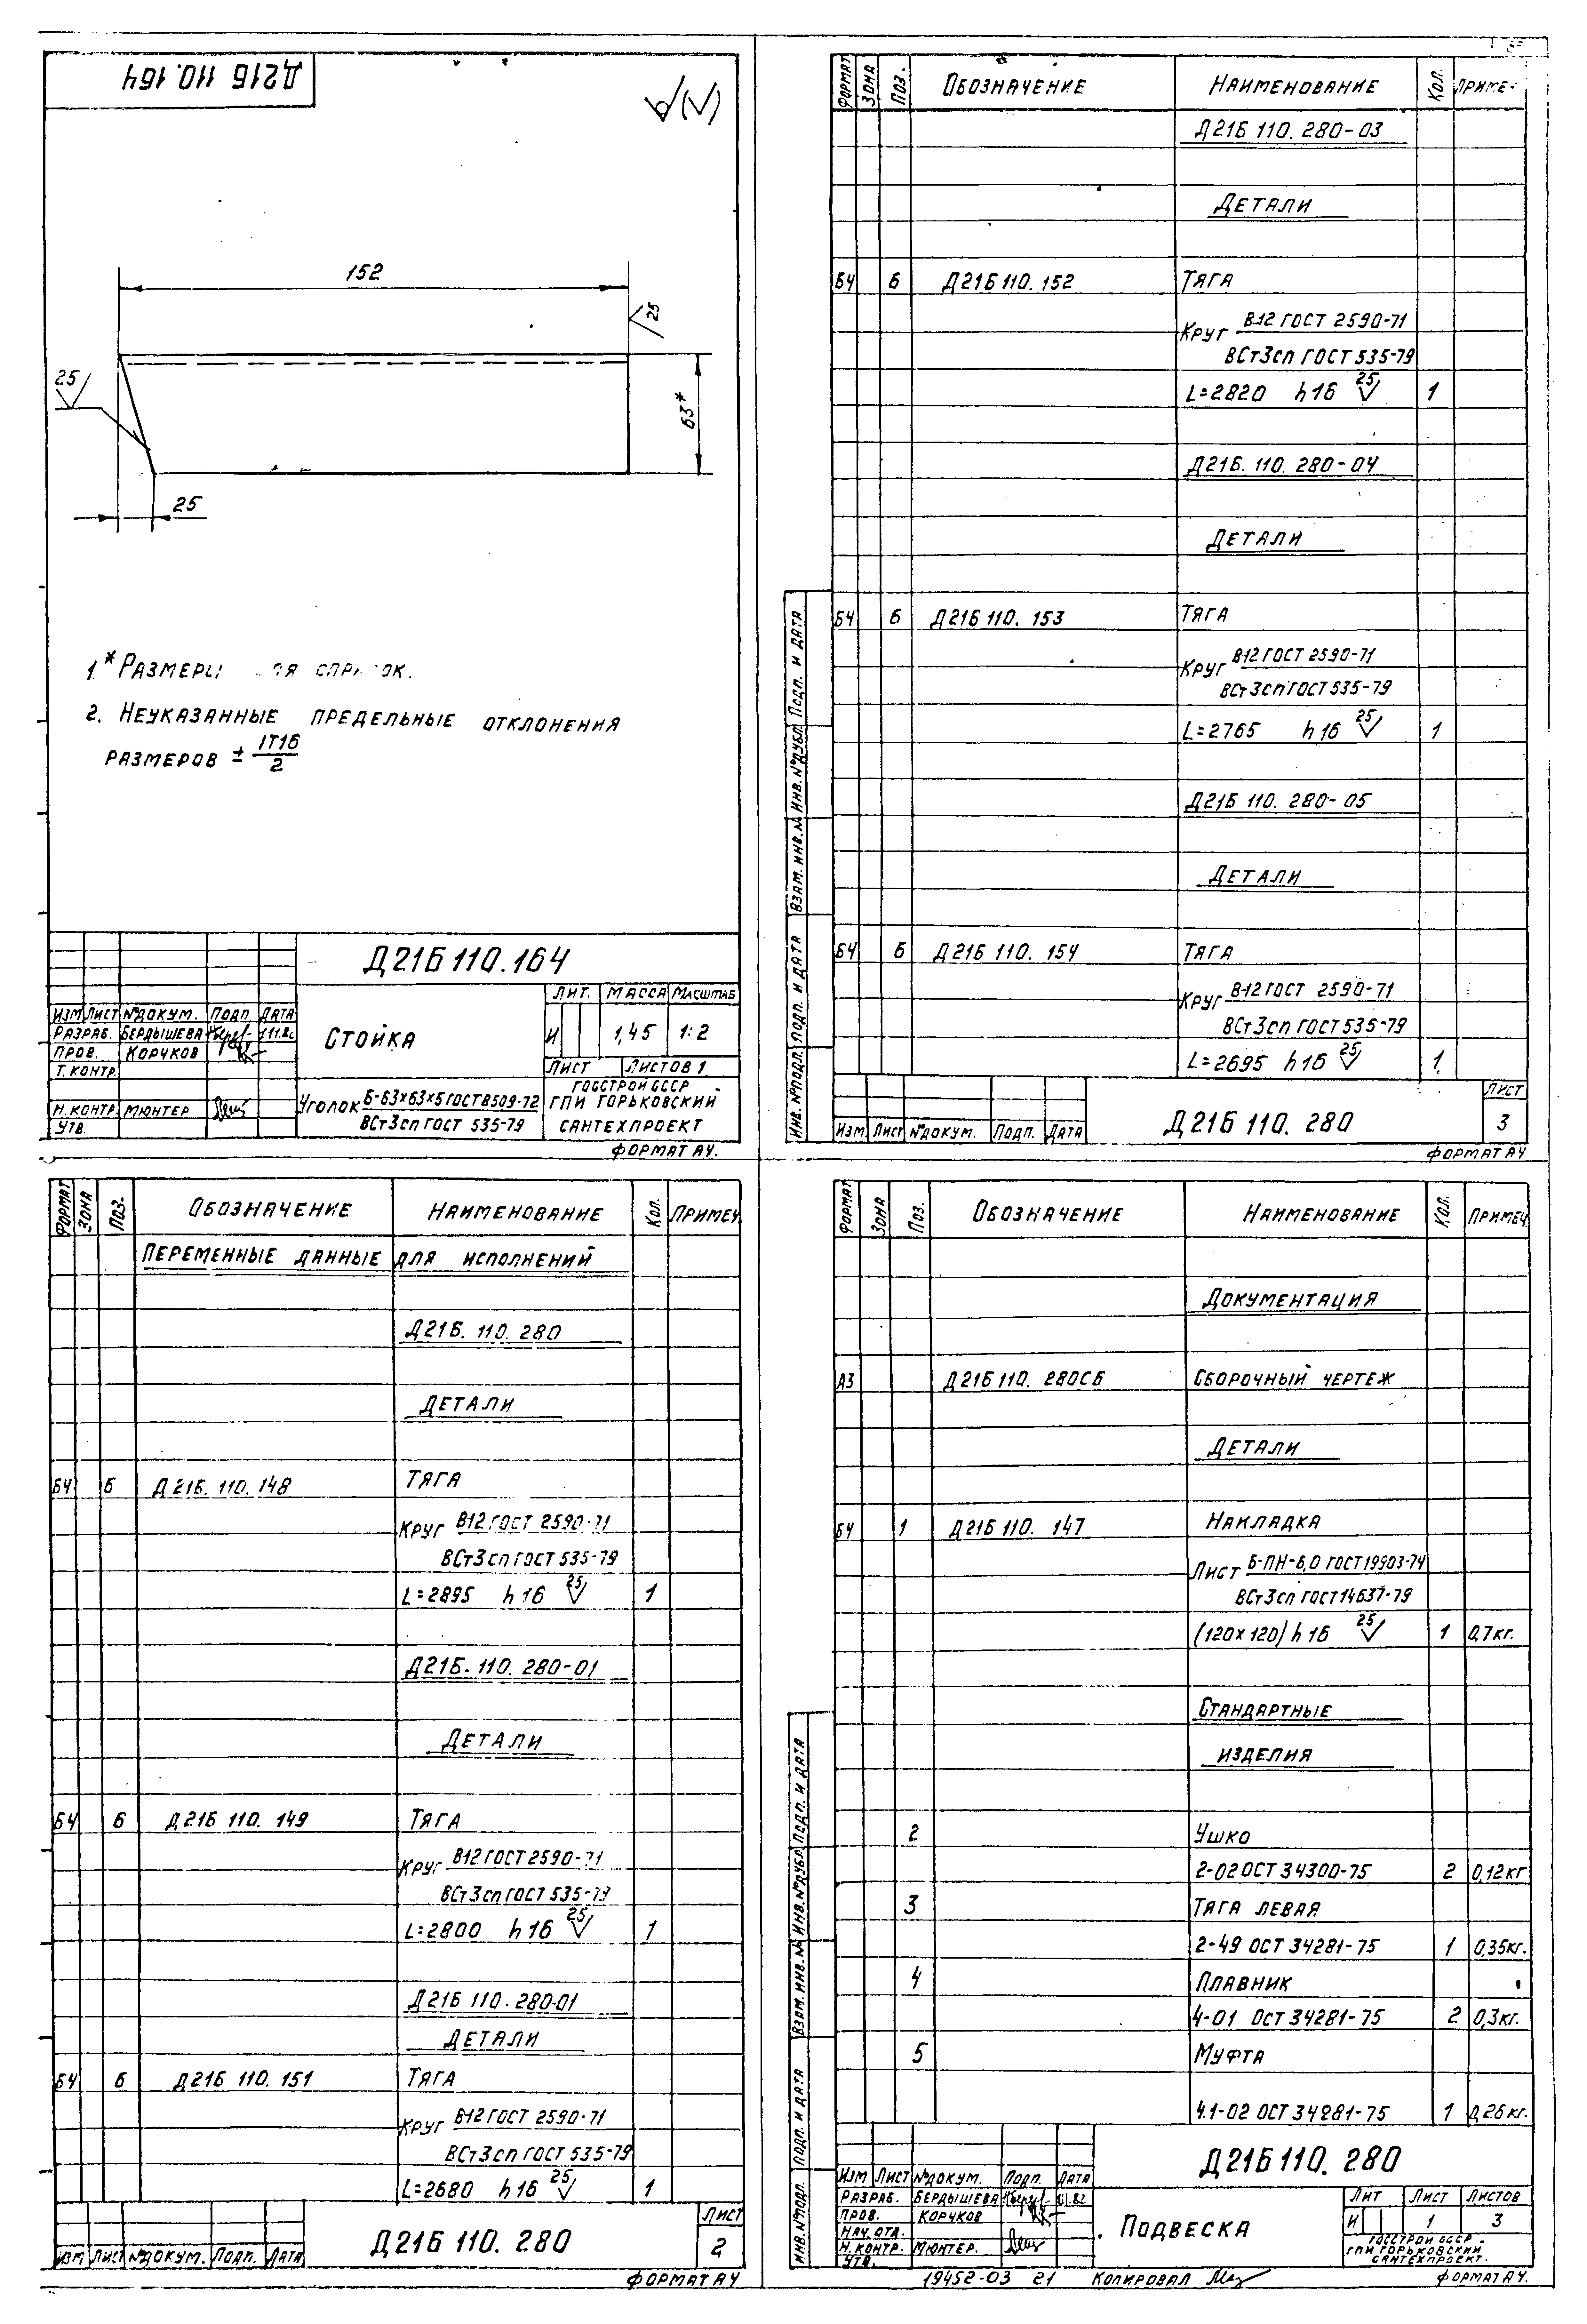 Д21Б 110.164
152
25
25
63*
25
1.* Размеры для справок.
2. Неуказанные предельные отклонения
размеров ± IT16/2
Д21Б 110.164
Изм Лист №докум. Подп Дата
Разраб. Бердышева
Пров. Корчков
Т.контр.
Н.контр. Мюнтер
Утв.
Стойка
Лит. Масса Масштаб
И 1,45 1:2
Лист Листов 1
Уголок Б-63х63х5 ГОСТ 8509-72
ВСт3сп ГОСТ 535-79
Госстрой СССР
ГПИ Горьковский
Сантехпроект
Формат А4.
Формат Зона Поз. Обозначение Наименование Кол. Примеч
Д21Б 110.280-03
Детали
Б4 6 Д21Б 110.152 Тяга
Круг В-12 ГОСТ 2590-71
ВСт3сп ГОСТ 535-79
L=2820 h16 25 1
Д21Б.110.280-04
Детали
Б4 6 Д21Б 110.153 Тяга
Круг В-12 ГОСТ 2590-71
ВСт3сп ГОСТ 535-79
L=2765 h16 25 1
Д21Б 110.280-05
Детали
Б4 6 Д21Б 110.154 Тяга
Круг В-12 ГОСТ 2590-71
ВСт3сп ГОСТ 535-79
L=2695 h16 25 1
Инв. №подл. Подп. и дата Взам. инв. № Инв. №дубл. Подп. и дата
Изм. Лист №докум. Подп. Дата
Д21Б 110.280
Лист
3
Формат А4
Формат Зона Поз. Обозначение Наименование Кол. Примеч
Переменные данные для исполнений
Д21Б.110.280
Детали
Б4 6 Д21Б.110.148 Тяга
Круг В12 ГОСТ 2590-71
ВСт3сп ГОСТ 535-79
L=2895 h16 25 1
Д21Б.110.280-01
Детали
Б4 6 Д21Б 110.149 Тяга
Круг В-12 ГОСТ 2590-71
ВСт3сп ГОСТ 535-79
L=2800 h16 25 1
Д21Б 110.280-01
Детали
Б4 6 Д21Б 110.151 Тяга
Круг В-12 ГОСТ 2590-71
ВСт3сп ГОСТ 535-79
L=2680 h16 25 1
Изм Лист №докум. Подп. Дата
Д21Б 110.280
Лист
2
Формат А4
Формат Зона Поз. Обозначение Наименование Кол. Примеч
Документация
А3 Д21Б 110.280СБ Сборочный чертеж
Детали
Б4 1 Д21Б 110.147 Накладка
Лист Б-ПН-6,0 ГОСТ 19903-74
ВСт3сп ГОСТ 14637-79
(120х120) h16 25 1 0,7кг.
Стандартные
изделия
2 Ушко
2-02 ОСТ 34300-75 2 0,12кг
3 Тяга левая
2-49 ОСТ 34281-75 1 0,35кг.
4 Плавник
4-01 ОСТ 34281-75 2 0,3кг.
5 Муфта
4.1-02 ОСТ 34281-75 1 0,26кг.
Инв. №подл. Подп. и дата Взам. инв. № Инв. №дубл. Подп. и дата
Д21Б 110.280
Изм Лист №докум. Подп. Дата
Разраб. Бердышева
Пров. Корчков
Нач. отд.
Н.контр. Мюнтер.
Утв.
Подвеска
Лит Лист Листов
И 1 3
Госстрой СССР
ГПИ Горьковский
Сантехпроект.
19452-03 21 Копировал Формат А4.